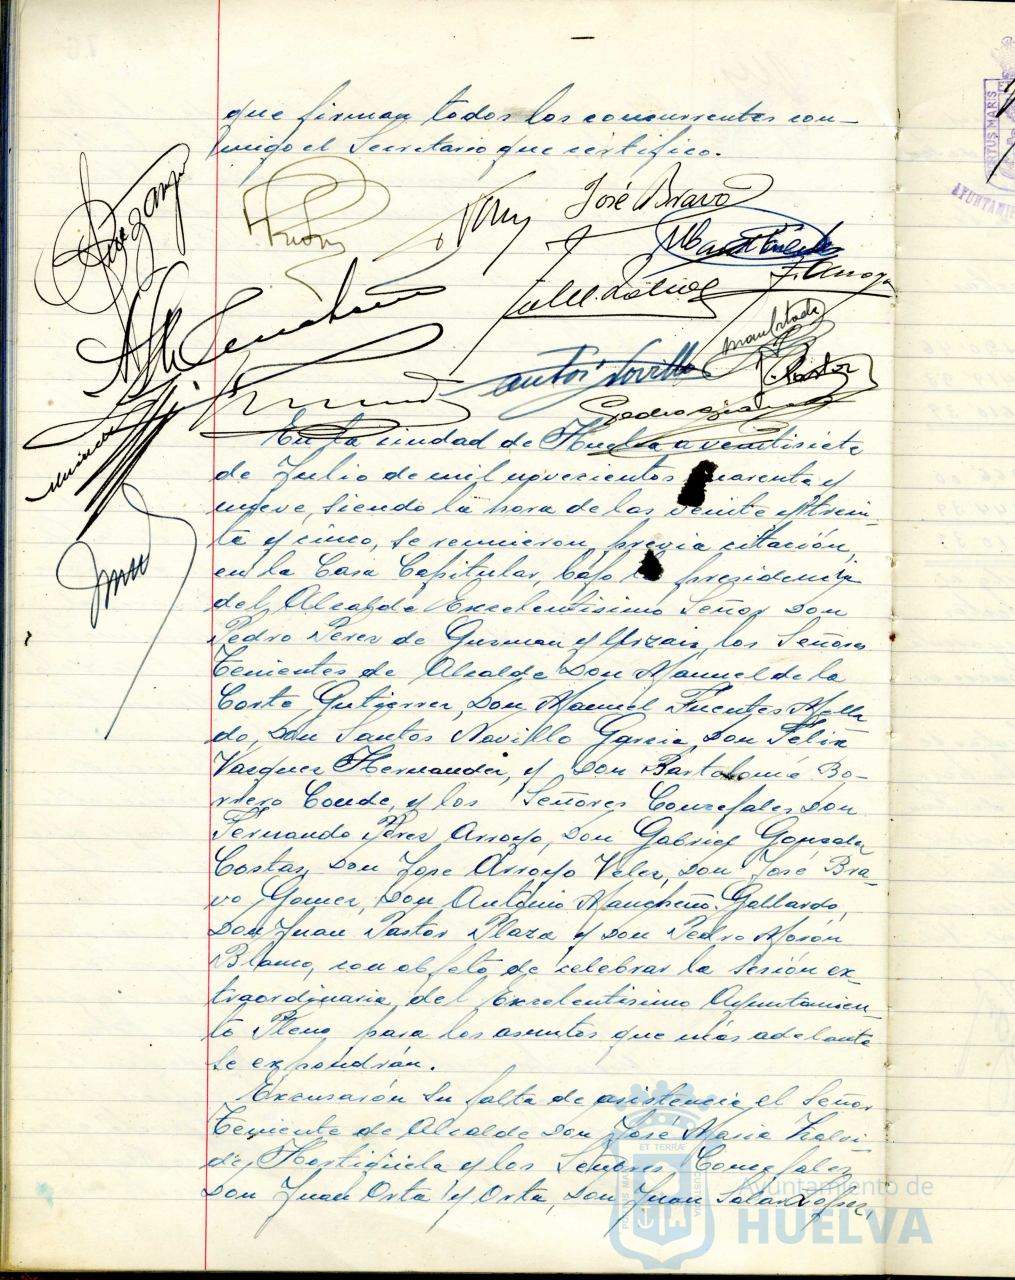 que firman todos los concurrentes con-
migo el Secretario, que certifico.
José Bravo
F. Arroyo
Antº Novillo
J. Pastor
En la ciudad de Huelva a veintisiete
de Julio de mil novecientos cuarenta y
nueve, siendo la hora de las veinte y trein-
ta y cinco, se reunieron, previa citación,
en la Casa Capitular, bajo la presidencia
del Alcalde Excelentísimo Señor Don
Pedro Pérez de Guzman y Urzaiz, los Señores
Tenientes de Alcalde Don Manuel de la
Corte Gutierrez, Don Manuel Fuentes Mella
do, Don Santos Novillo García, Don Félix
Vázquez Hernández, y Don Bartolomé Bo-
rrero Conde, y los Señores Concejales Don
Fernando Pérez Arroyo, Don Gabriel González
Costaz, Don Jose Arroyo Velez, Don José Bra-
vo Gomez, Don Antonio Mancheño Gallardo,
Don Juan Pastor Plaza y Don Pedro Morón
Blanco, con objeto de celebrar la Sesión ex-
traordinaria del Excelentísimo Ayuntamien-
to Pleno para los asuntos que más adelante
se expondrán.
Excusarón su falta de asistencia el Señor
Teniente de Alcalde Don José Maria
de Hortigüela y los Señores Concejales
Don Juan Orta y Orta, Don Juan Salas Lopez,
Ayuntamiento de
HUELVA